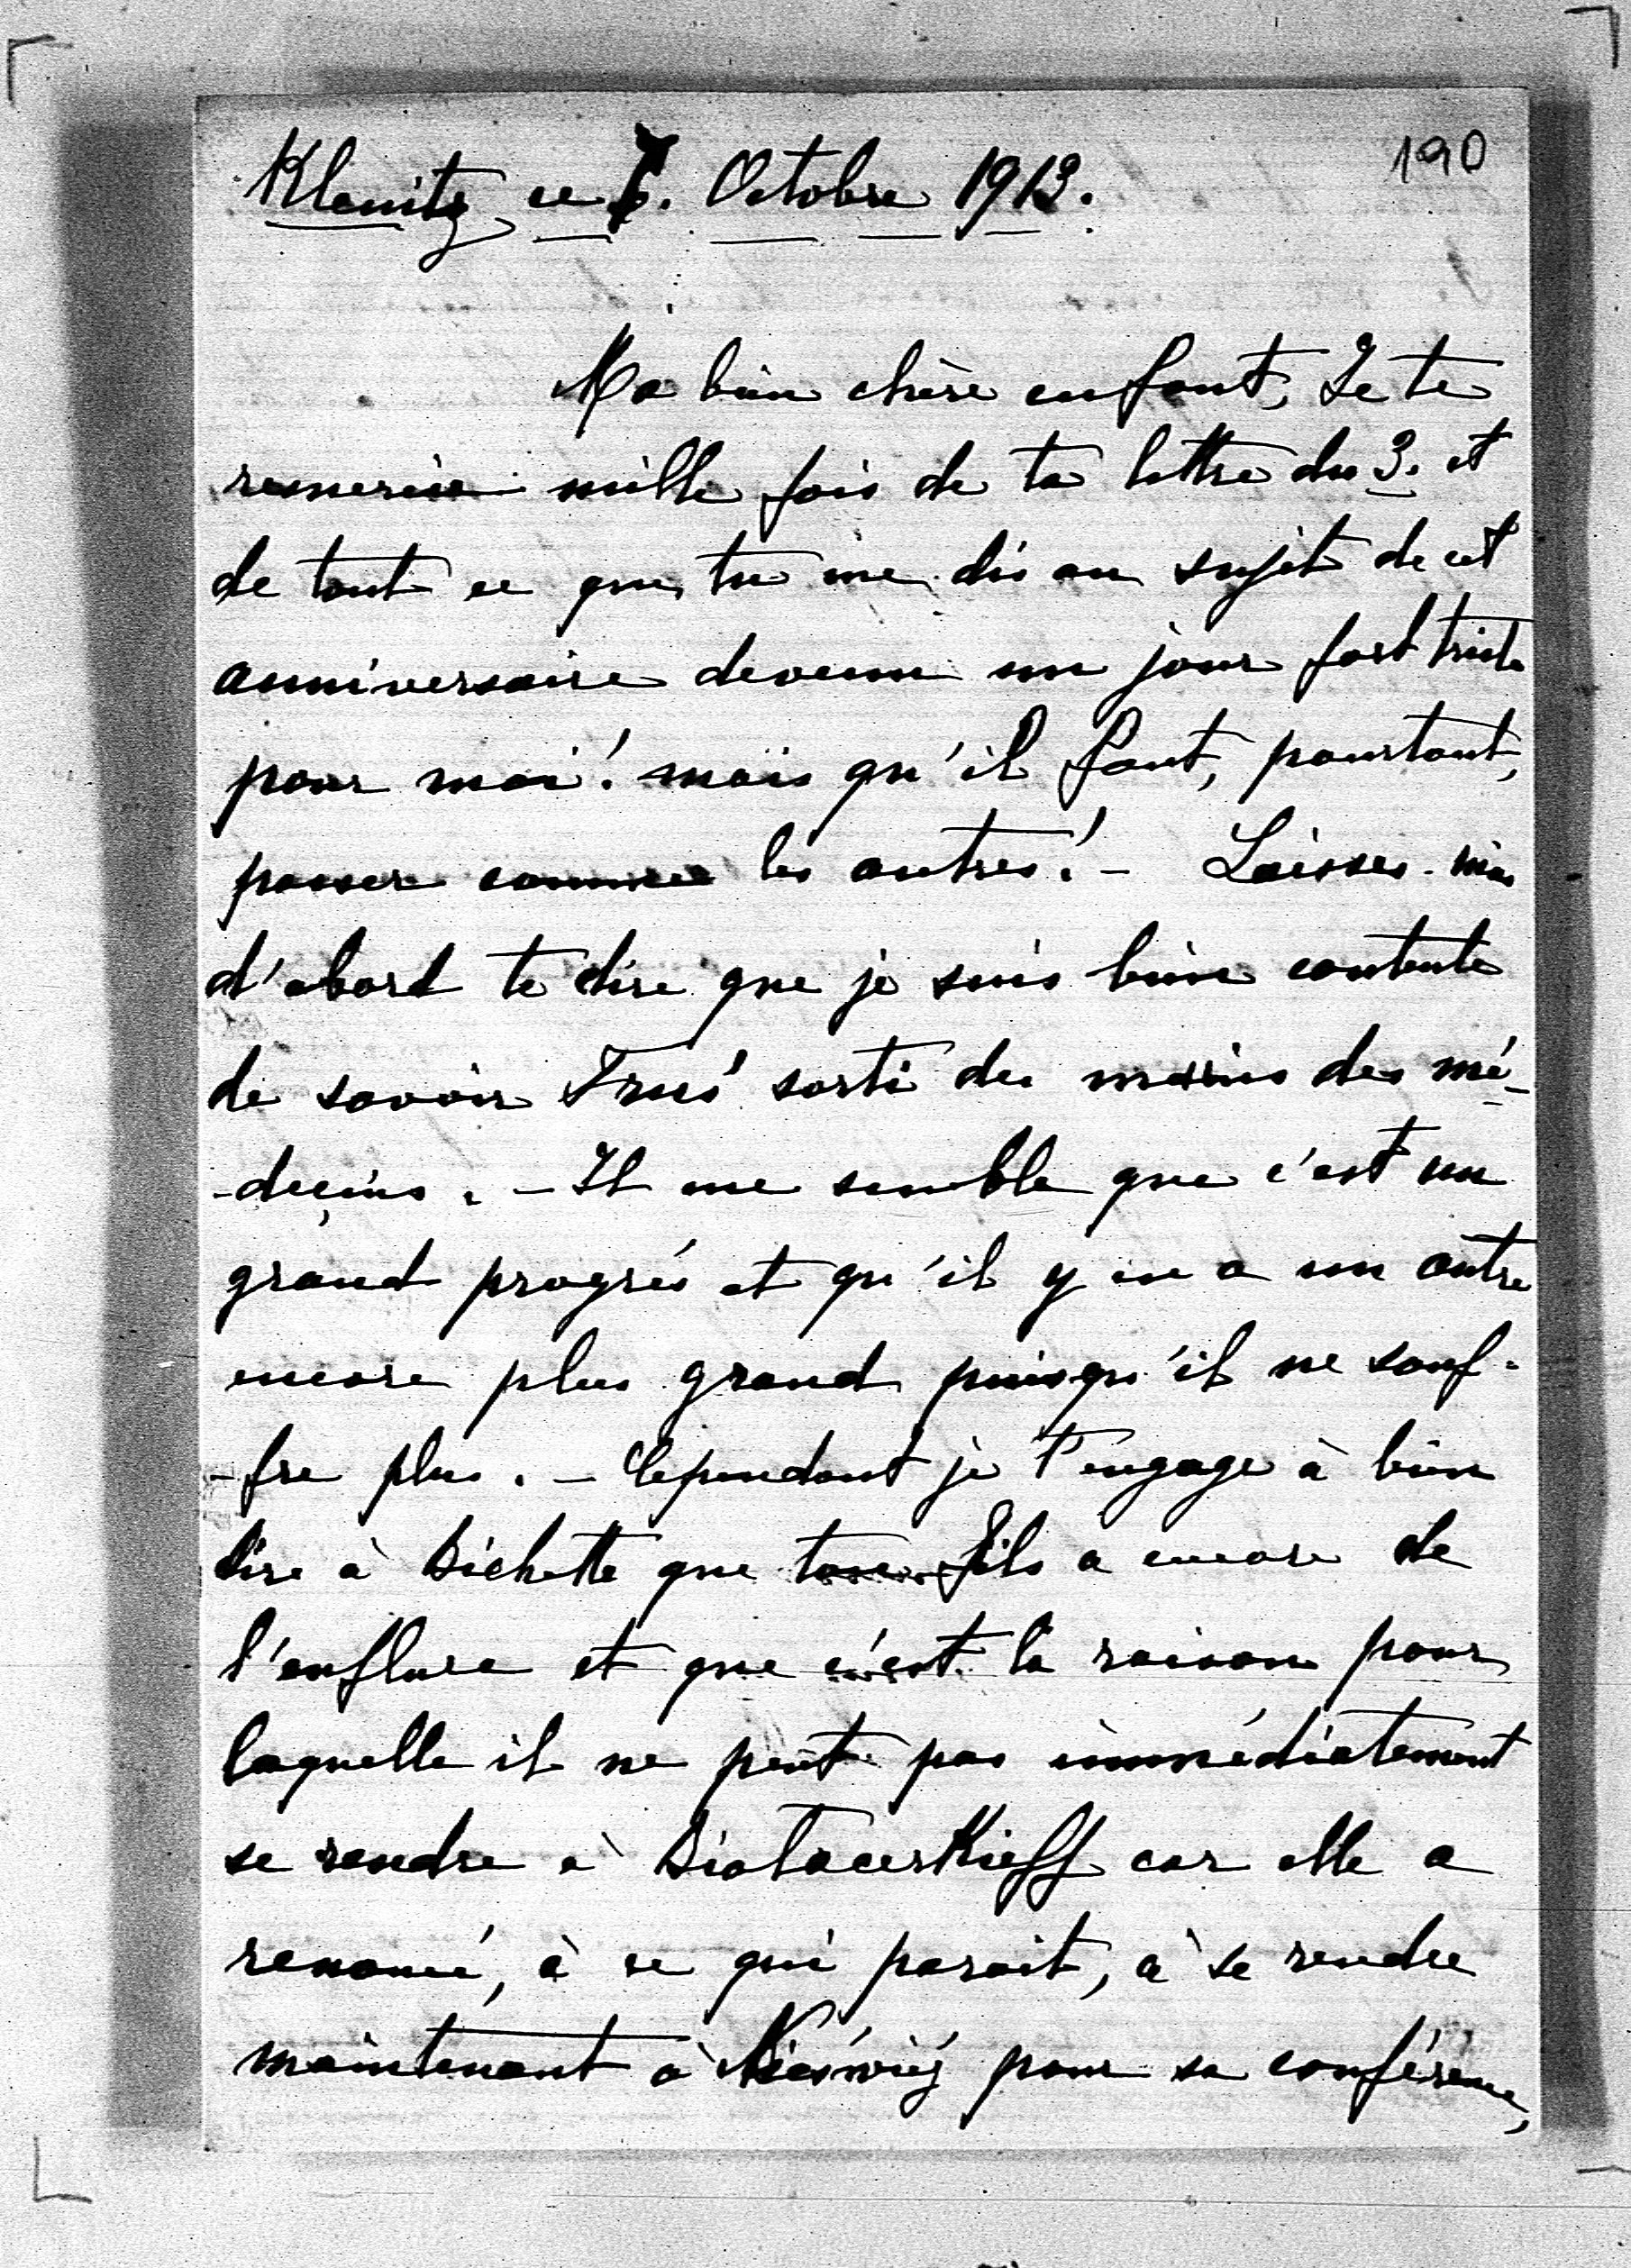 190
Klenitz, ce 7. Octobre 1913.
Ma bien chère enfant, Je te
remercie mille fois de ta lettre du 3. et
de tout ce que tu me dis au sujet de cet
anniversaire devenu un jour fort triste
pour moi! mais qu'il faut, pourtant,
passer comme les autres! - Laisses-moi
d'abord te dire que je suis bien contente
de savoir sorti des mains des mé-
-deçins. - Il me semble que c'est un
grand progrés et qu'il y en a un autre
encore plus grand puisqu'il ne souf-
-fre plus. - Cependant je t'engage à bien
dire à Bichette que ton fils a encore de
l'enflure et que c'est la raison pour
laquelle il ne peut pas immédiatement
se rendre à BiałacerKieff car elle a
renoncé, à ce qui parait, à se rendre
maintenant à Nieśwież pour sa conférence,